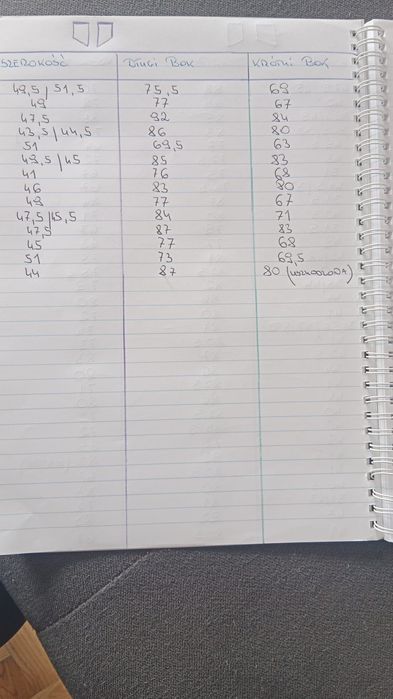 SZEROKOŚĆ DŁUGI BOK KRÓTKI BOK
49,5 / 51,5 75,5 69
49 77 67
47,5 92 84
43,5 / 44,5 86 80
51 69,5 63
49,5 / 45 85 83
41 76 68
46 83 80
49 77 67
47,5 / 45,5 84 71
47,5 87 83
45 77 68
51 73 69,5
44 87 80